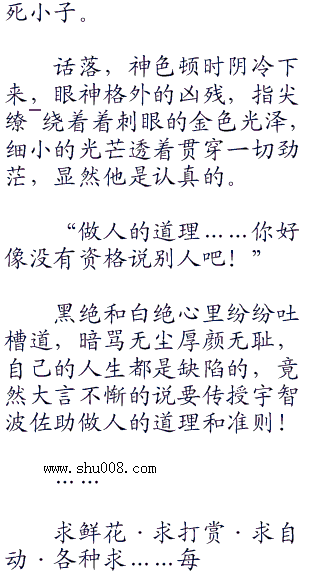 死小子。
话落，神色顿时阴冷下
来，眼神格外的凶残，指尖
缭¯绕着着刺眼的金色光泽，
细小的光芒透着贯穿一切劲
茫，显然他是认真的。
“做人的道理……你好
像没有资格说别人吧！”
黑绝和白绝心里纷纷吐
槽道，暗骂无尘厚颜无耻，
自己的人生都是缺陷的，竟
然大言不惭的说要传授宇智
波佐助做人的道理和准则！
www.shu008.com
……
求鲜花·求打赏·求自
动·各种求……每